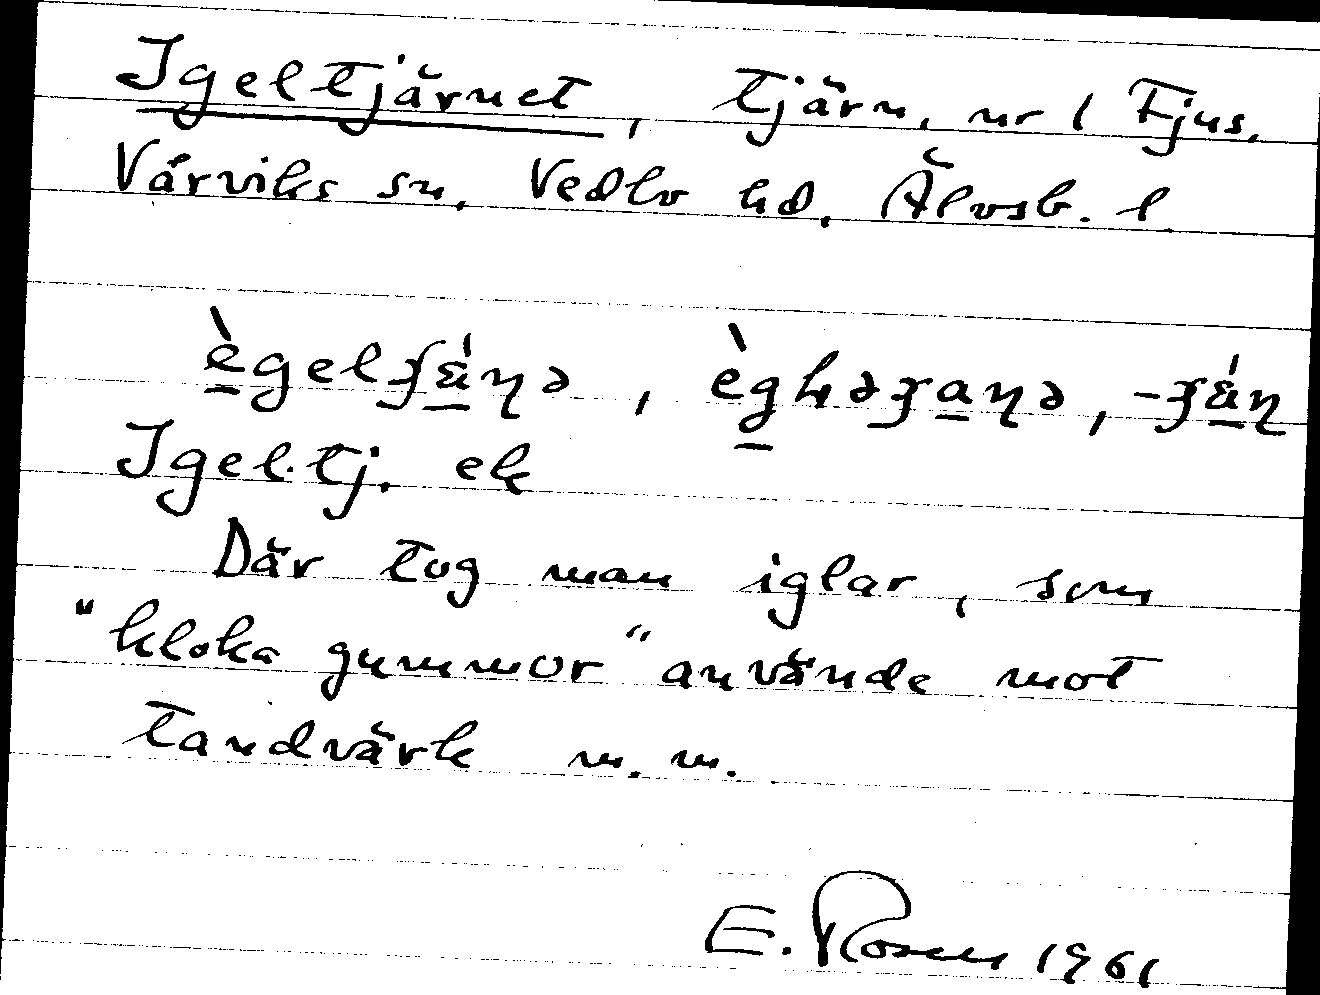 Igeltjärnet, tjärn, nr 1 Fjus.
Vårviks sn, Vedbo hd, Älvsb. l
Igel.tj. ek
Där tog man iglar, som
"kloka gummor" använde mot
tandvärk m.m.
E. Rosen 1961